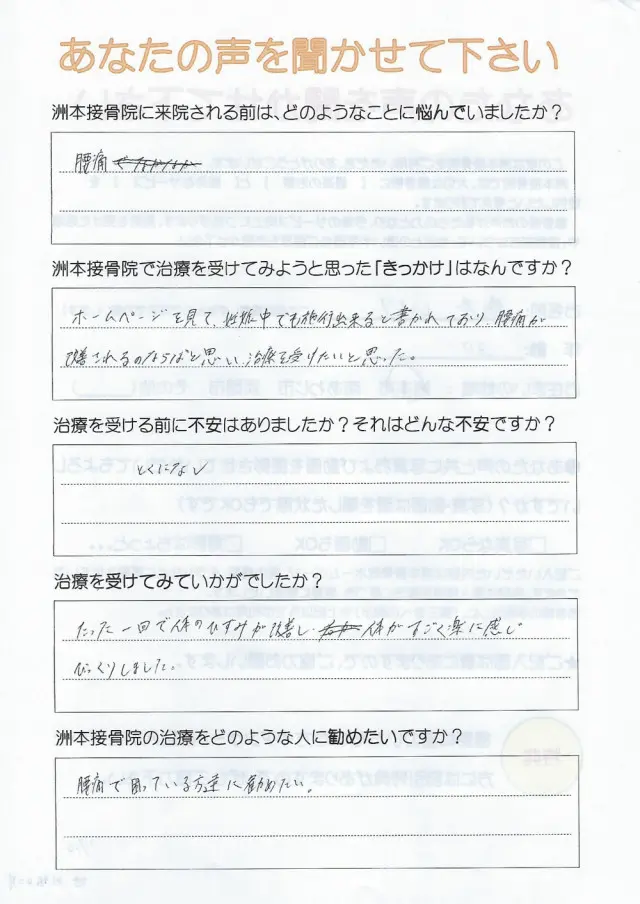 あなたの声を聞かせて下さい
洲本接骨院に来院される前は、どのようなことに悩んでいましたか？
腰痛
洲本接骨院で治療を受けてみようと思った「きっかけ」はなんですか？
ホームページを見て、妊娠中でも施術出来ると書かれており、腰痛が
改善されるのならばと思い、治療を受けたいと思った。
治療を受ける前に不安はありましたか？それはどんな不安ですか？
とくになし
治療を受けてみていかがでしたか？
たった一回で体のひずみが改善し、体がすごく楽に感じ
びっくりしました。
洲本接骨院の治療をどのような人に勧めたいですか？
腰痛で困っている方達に勧めたい。